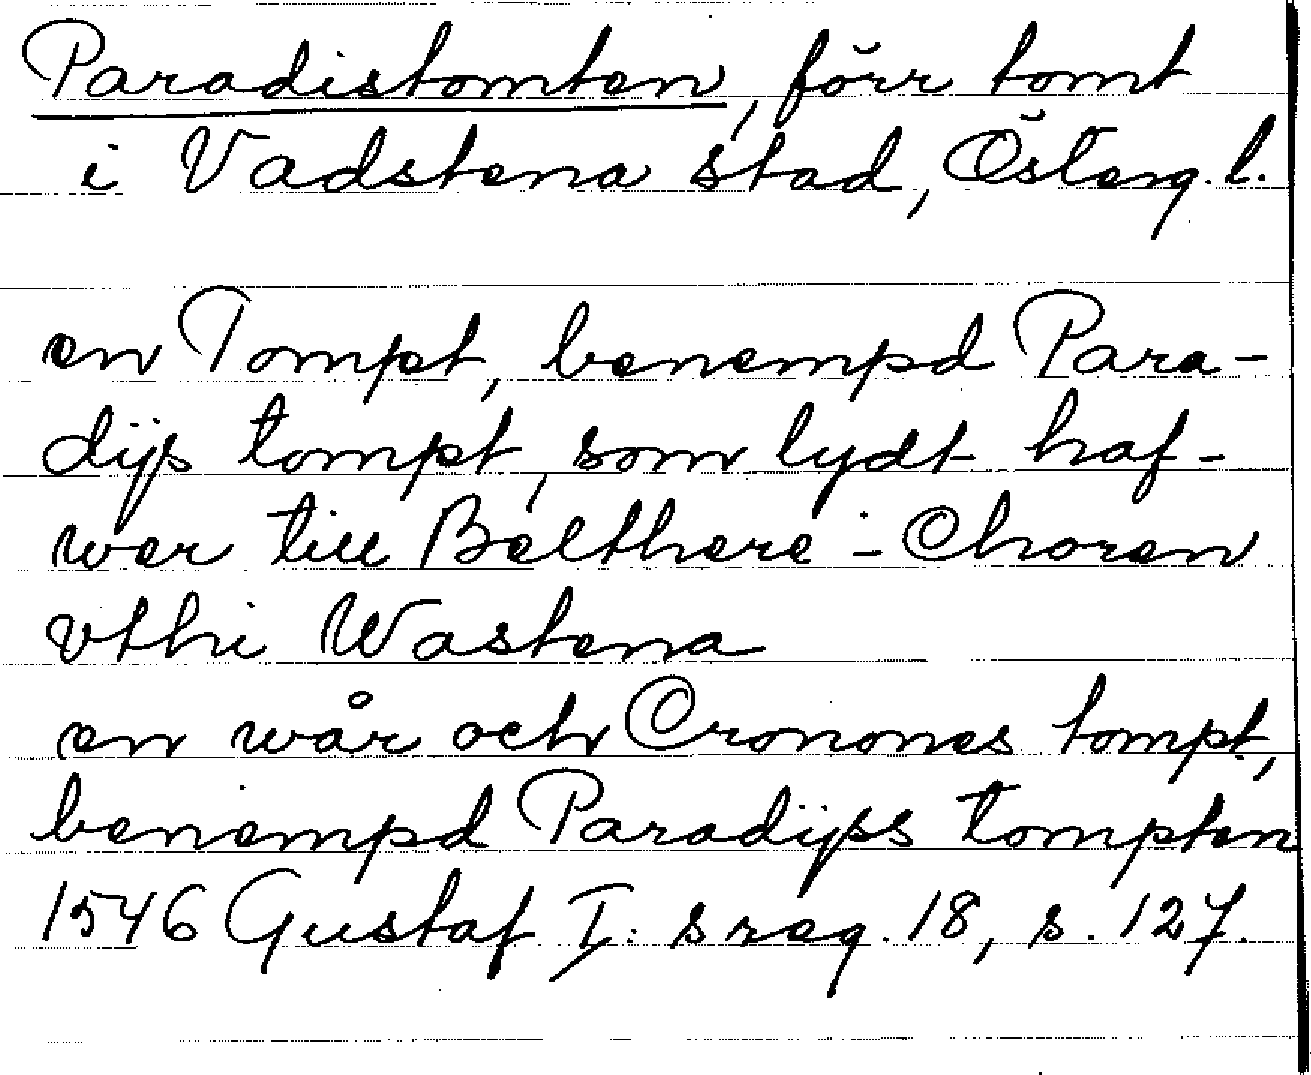 Paradistomten, förr tomt
i Vadstena stad, Österg. l.
en Tompt, benempd Para-
dijs tompt, som lydt haf-
wer till Belthere-Choren
vthi Wastena
en wår och Cronones tompt,
benempd Paradijss tompten
1546 Gustaf I:s reg. 18, s. 127.